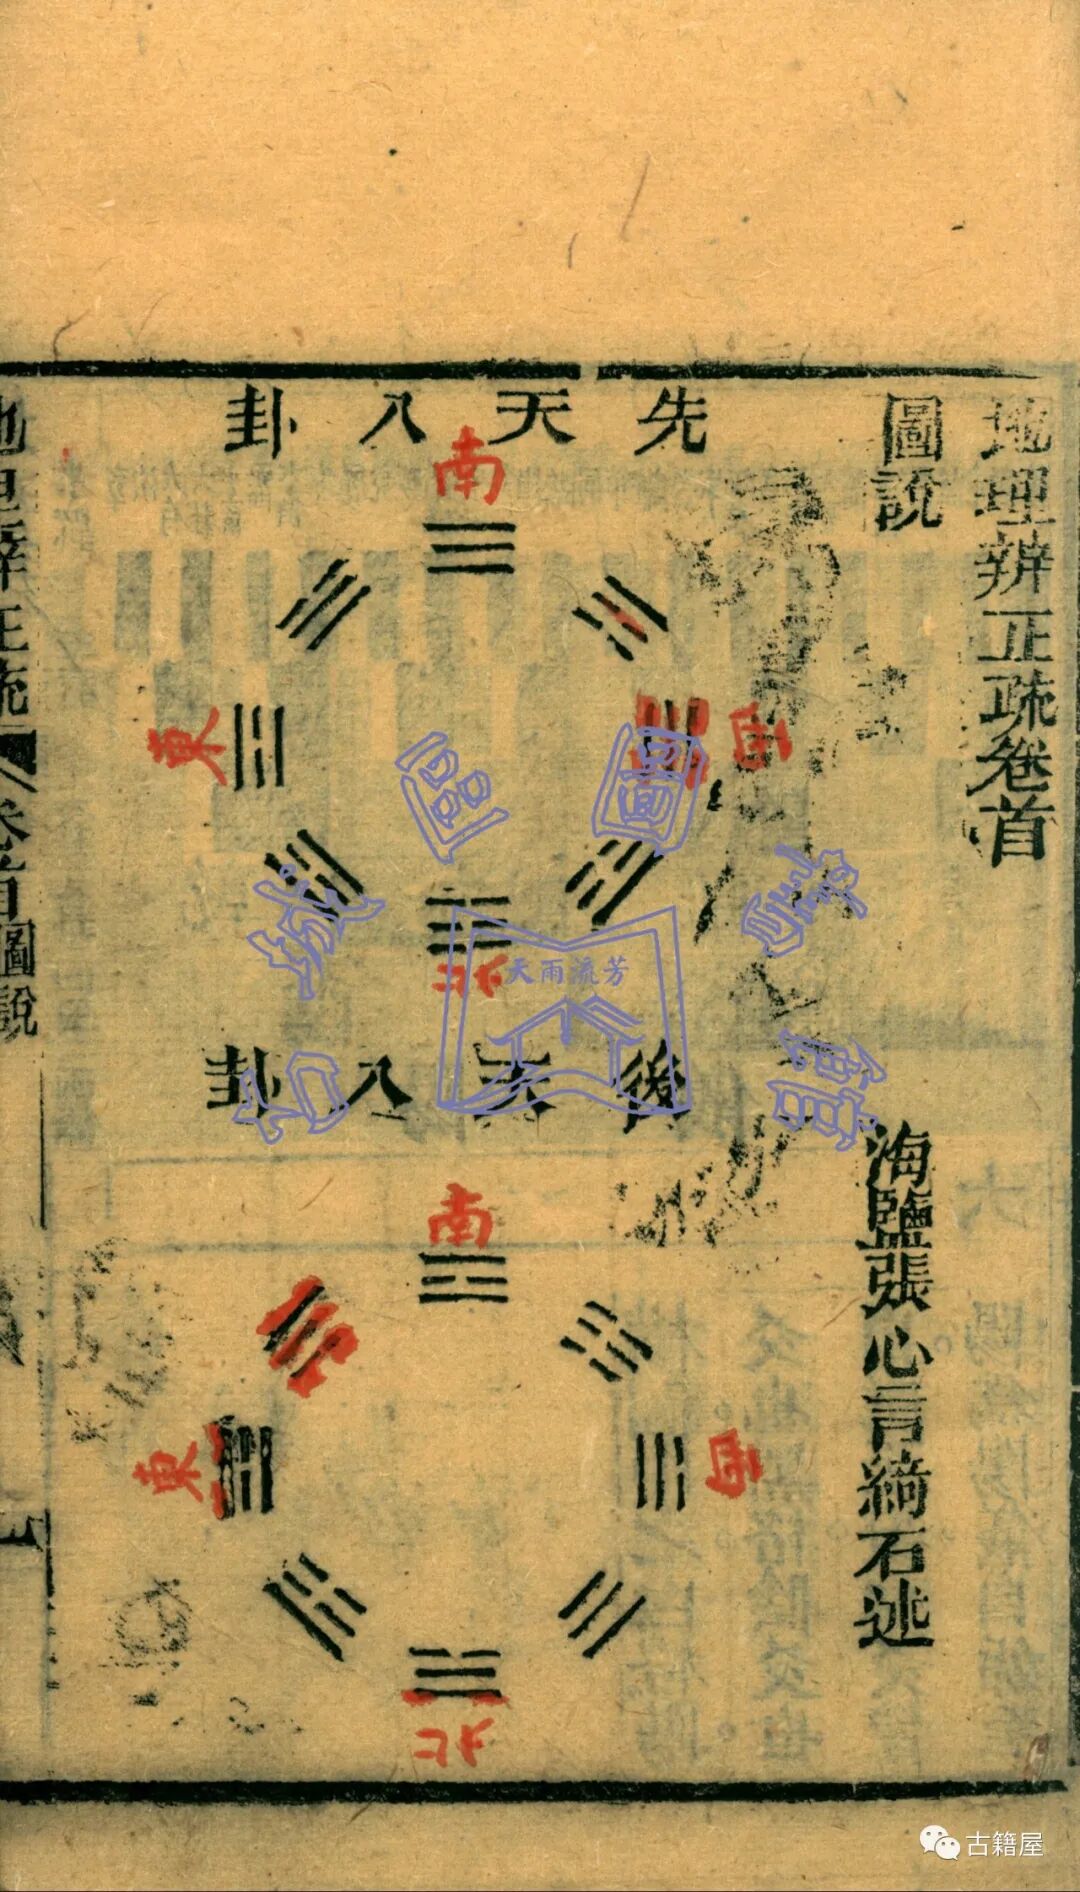 地理辨正疏卷首
圖說
海鹽張心言綺石述
先天八卦
南
東
西
北
後天八卦
南
東
西
北
地理辨正疏
卷首圖說
天雨流芳
古籍屋